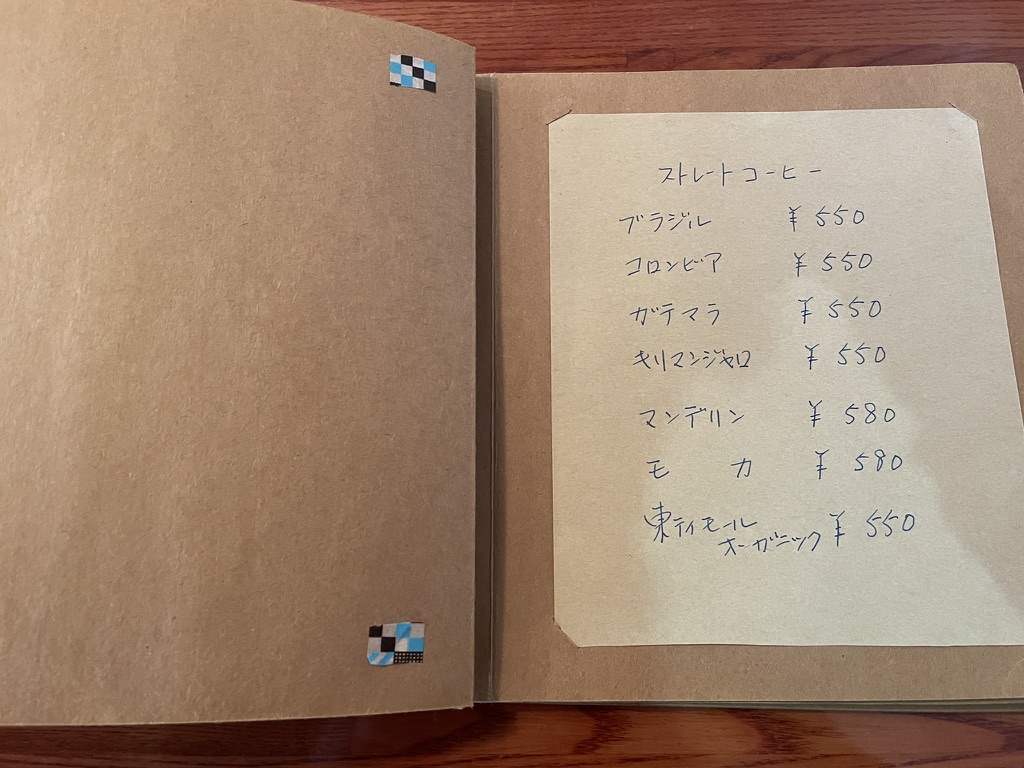 ストレートコーヒー
ブラジル ¥550
コロンビア ¥550
ガテマラ ¥550
キリマンジャロ ¥550
マンデリン ¥580
モカ ¥580
東ティモール
オーガニック ¥550